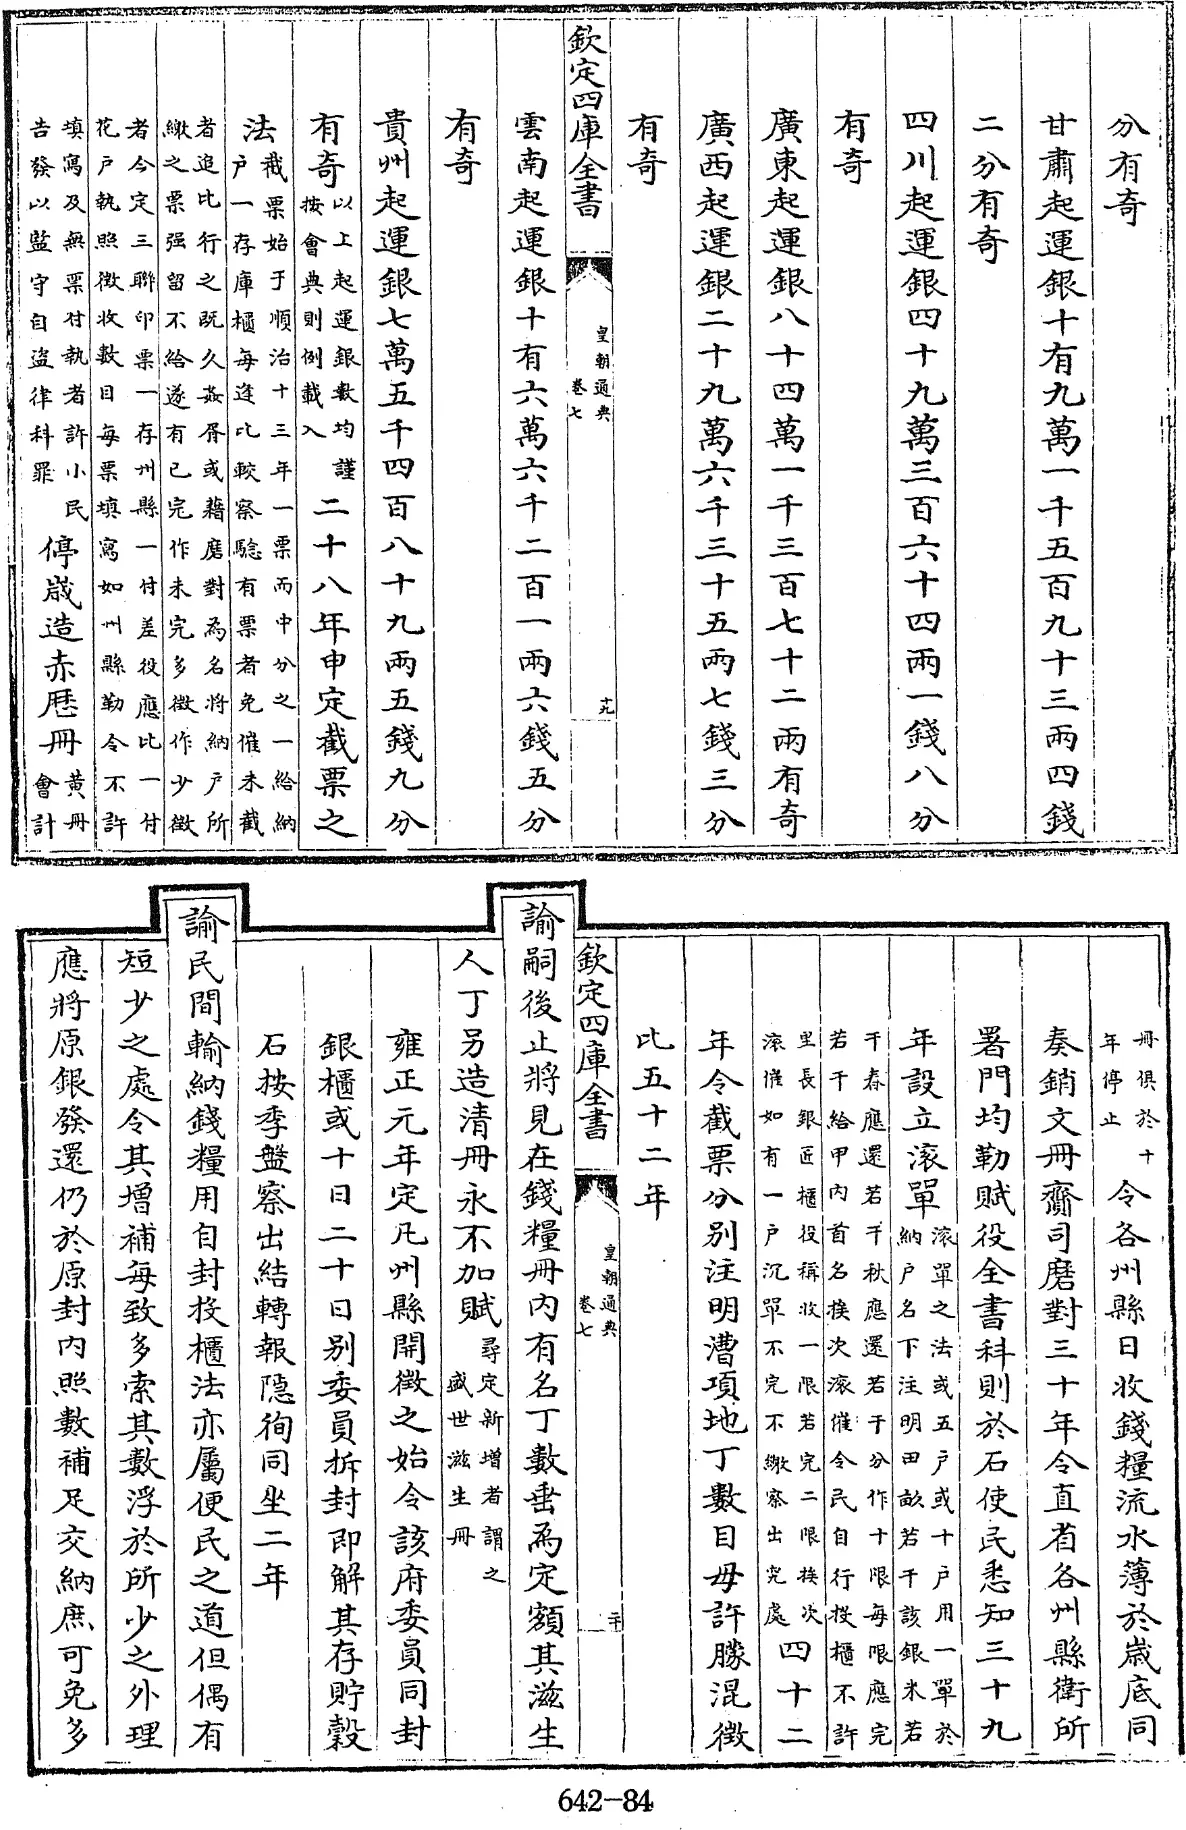 分有奇
甘肅起運銀十有九萬一千五百九十三兩四錢
二分有奇
四川起運銀四十九萬三百六十四兩一錢八分
有奇
廣東起運銀八十四萬一千三百七十二兩有奇
廣西起運銀二十九萬六千三十五兩七錢三分
有奇
欽定四庫全書
皇朝通典
卷七
十九
雲南起運銀十有六萬六千二百一兩六錢五分
有奇
貴州起運銀七萬五千四百八十九兩五錢九分
有奇以上起運銀數均謹按會典則例載入二十八年申定截票之
法截票始于順治十三年一票而中分之一給納户一存庫櫃每逢比較察騐有票者免催未截
者追比行之既久姦胥或藉磨對為名將納户所繳之票强留不給遂有已完作未完多徵作少徵
者今定三聯印票一存州縣一付差役應比一付花户執照徵收數目每票填寫如州縣勒令不許
填寫及無票付執者許小民告發以監守自盜律科罪停歲造赤歷冊黄冊會計
冊俱於十年停止令各州縣日收錢糧流水薄於歲底同
奏銷文冊齎司磨對三十年令直省各州縣衛所
署門均勒賦役全書科則於石使民悉知三十九
年設立滚單滚單之法或五户或十户用一單於納户名下注明田畝若干該銀米若
干春應還若干秋應還若干分作十限每限應完若干給甲內首名挨次滚催令民自行投櫃不許
里長銀匠櫃役稱收一限若完二限挨次滚催如有一户沉單不完不繳察出究處四十二
年令截票分別注明漕項地丁數目毋許朦混徵
比五十二年
欽定四庫全書
皇朝通典
卷七
二十
諭嗣後止將見在錢糧冊內有名丁數垂為定額其滋生
人丁另造清冊永不加賦尋定新增者謂之盛世滋生冊
雍正元年定凡州縣開徵之始令該府委員同封
銀櫃或十日二十日別委員拆封即解其存貯穀
石按季盤察出結轉報隱徇同坐二年
諭民間輸納錢糧用自封投櫃法亦屬便民之道但偶有
短少之處令其增補每致多索其數浮於所少之外理
應將原銀發還仍於原封內照數補足交納庶可免多
642-84